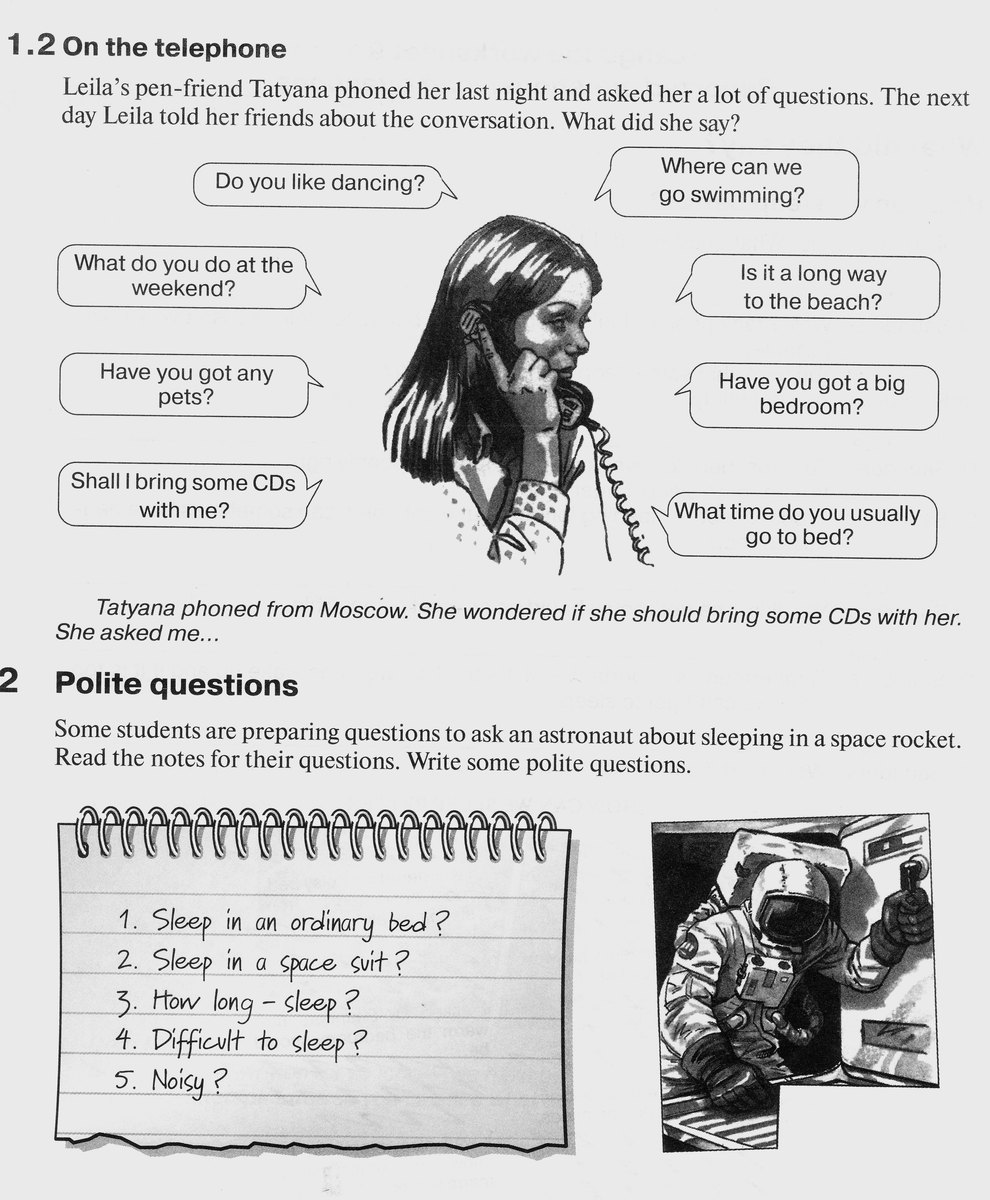 1.2 On the telephone
Leila's pen-friend Tatyana phoned her last night and asked her a lot of questions. The next
day Leila told her friends about the conversation. What did she say?
Do you like dancing?
Where can we
go swimming?
What do you do at the
weekend?
Is it a long way
to the beach?
Have you got any
pets?
Have you got a big
bedroom?
Shall I bring some CDs
with me?
What time do you usually
go to bed?
Tatyana phoned from Moscow. She wondered if she should bring some CDs with her.
She asked me...
2 Polite questions
Some students are preparing questions to ask an astronaut about sleeping in a space rocket.
Read the notes for their questions. Write some polite questions.
1. Sleep in an ordinary bed?
2. Sleep in a space suit?
3. How long – sleep?
4. Difficult to sleep?
5. Noisy?